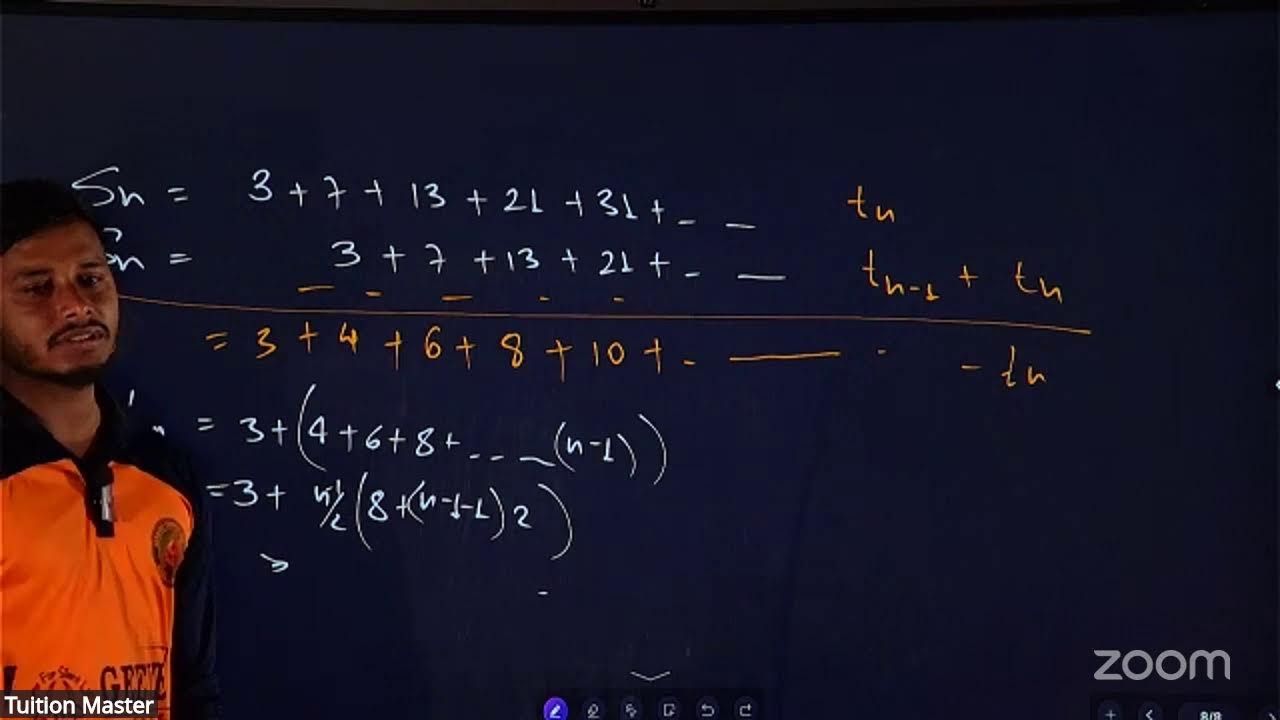 Sn = 3 + 7 + 13 + 21 + 31 + - — tn
Sn = 3 + 7 + 13 + 21 + - — tn-1 + tn
— - — - -
= 3 + 4 + 6 + 8 + 10 + - —— . - tn
n = 3+(4+6+8+ - - - (n-1))
=3+ n-1/2 (8+(n-1-1)2)
zoom
Tuition Master
8/8